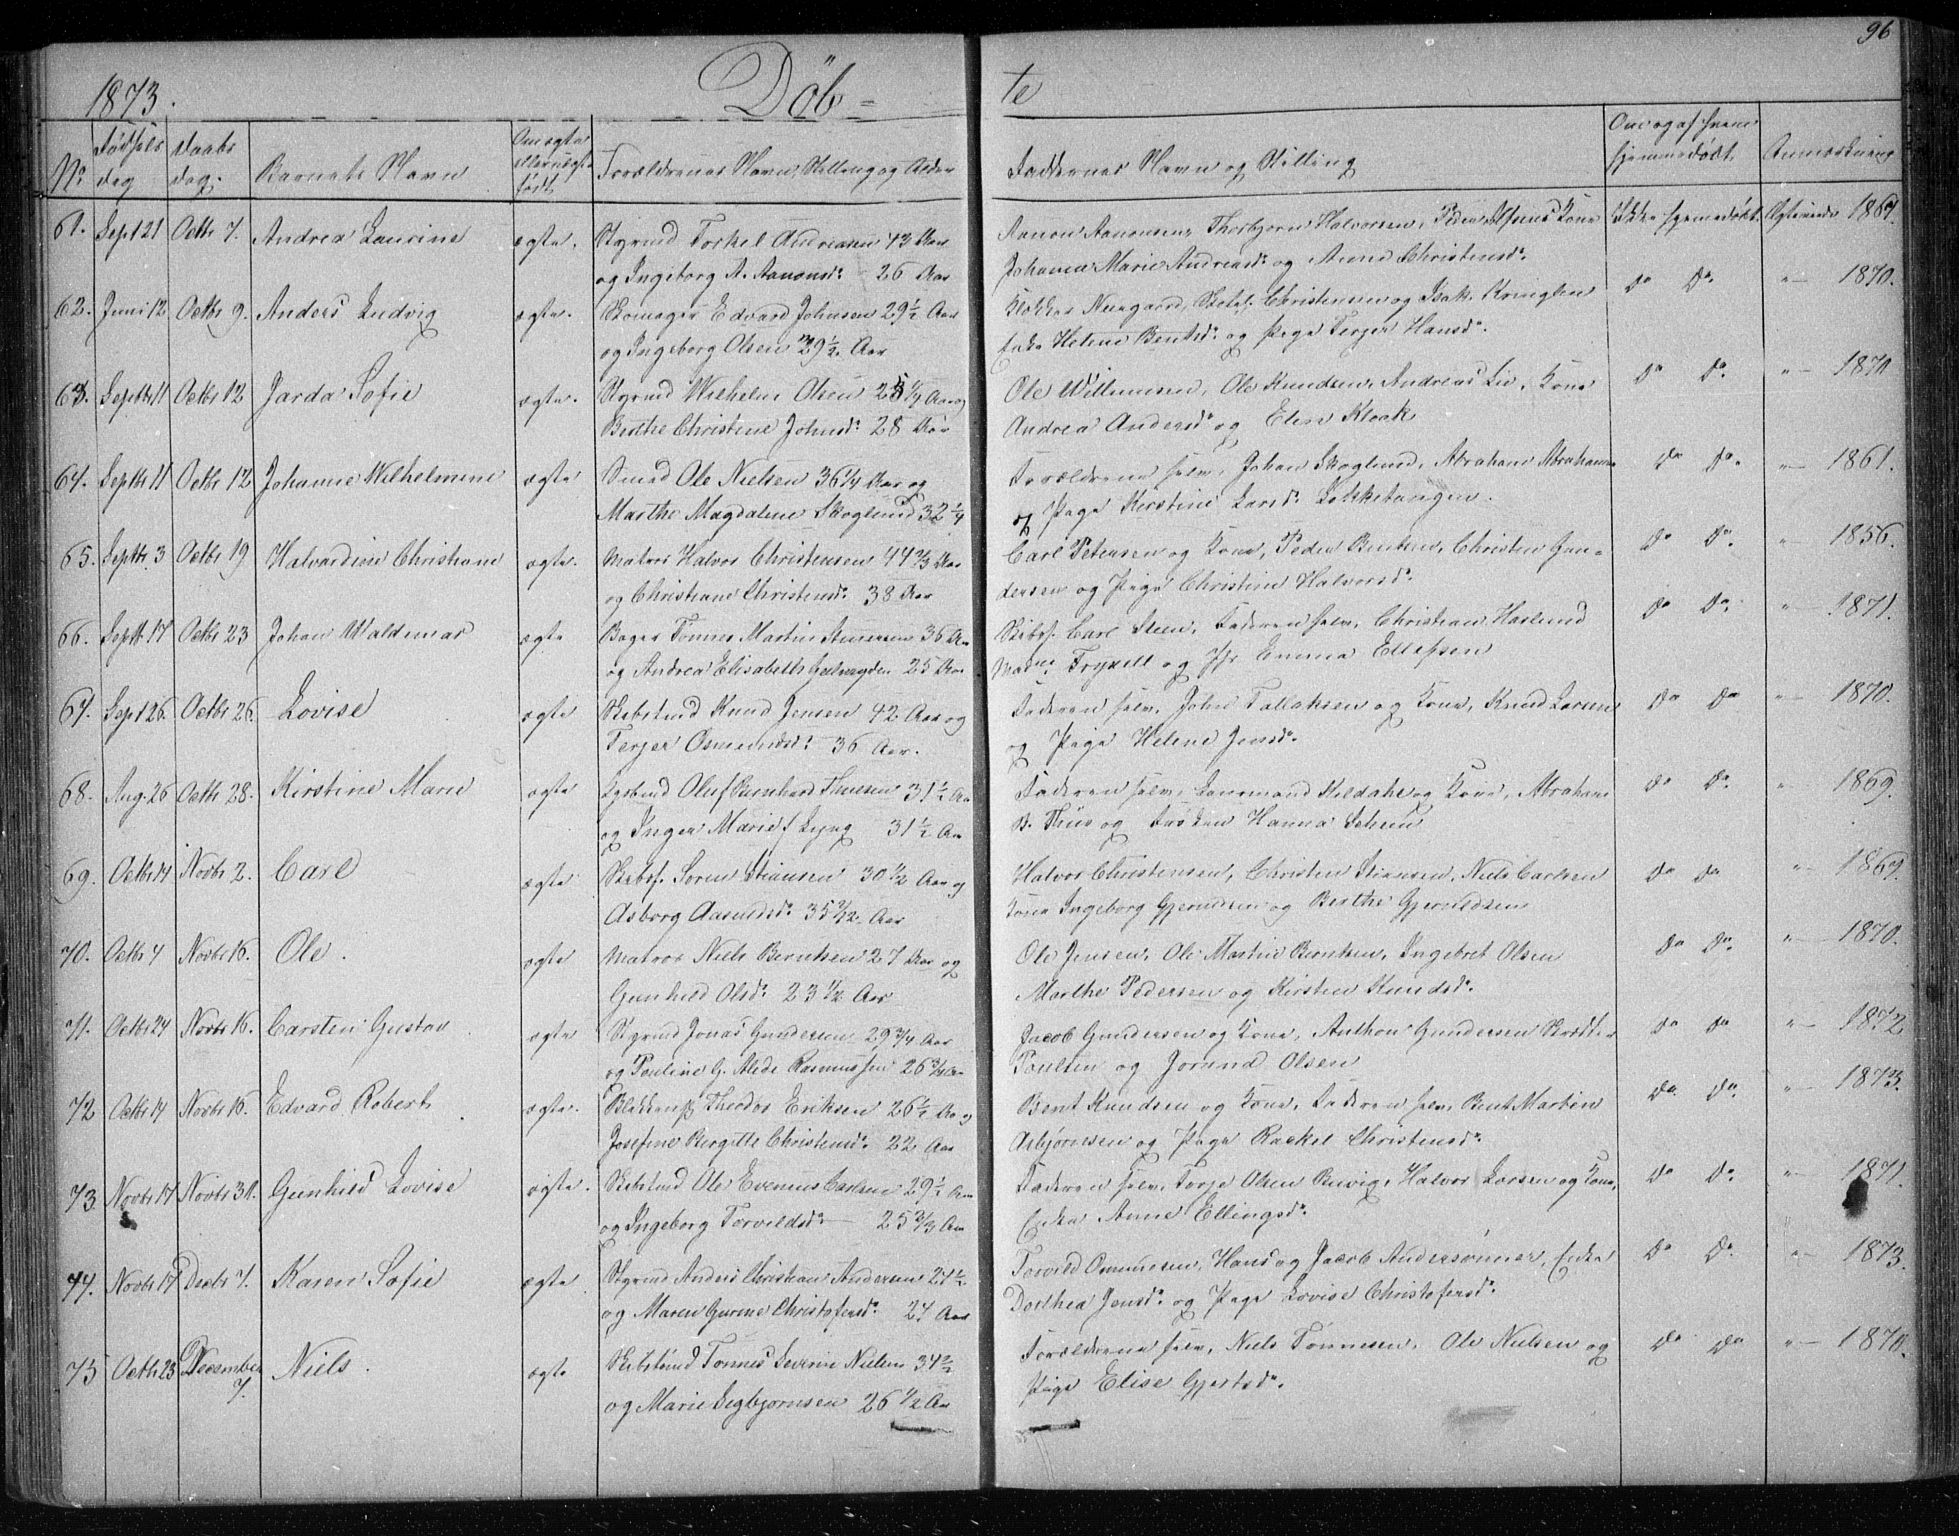 96
1873. Döb= te
No Fødsels dag Daabs dag. Barnets Navn Om ægte eller uægte født Forældrenes Navn, Stilling og Alder Faddernes Navn og Stilling Om og af hvem hjemmedøbt Anmærkning
61. Sept 21 Octbr 7. Andrea Laurine ægte. Styrmd Torkel Andreasen 43 Aar Aanon Aanonsen, Thorbjørn Halvorsen, Peder Kone Ikke hjemmedøbt Ægteviede 1867.
og Ingeborg A. Aanonsdr 26 Aar Johanne Marie Andreasdr og Anne Christensdr.
62. Juni 12 Octbr 9. Anders Ludvig ægte. Skomager Edvard Johnsen 29½ Aar Klokker Neergaard, Christensen og Isak Kringlen Do Do " 1870.
og Ingeborg Olsen 29½ Aar Enke Helene Bentsdr og Pige Terjer Hansdr.
63. Septbr 11 Octbr 12 Jarda Sofie ægte. Styrmd Wilhelm Olsen 25¼ Aar og Ole Willumsen, Ole Knudsen, Andreas Lie, Kone Do Do " 1870
Berthe Christine Johnsdr 28 Aar Andrea Andersdr og Elen Kloak
64. Septbr 11 Octbr 12 Johanne Wilhelmine ægte Smed Ole Nielsen 36¼ Aar og Forældrene selv, Johan Skoglund, Abraham Abrahams Do Do " 1861.
Marthe Magdalene Skoglund 32¼ og Pige Kirstine Larsdr Loksketangen.
65. Septbr. 3 Octbr 19 Halvardine Christiane ægte. Matros Halvor Christensen 44⅔ Aar Carl Petersen og Kone, Peder Bentsen, Christen Gun= Do Do " 1856.
og Christiane Christensdr 38 Aar dersen og Pige Christine Halvorsdr.
66. Septbr 17 Octbr 23 Johan Waldemar ægte Bager Tønnes Martin 36 Aar Skibsf. Carl Steen, Faderen selv, Christian Haslund Do Do " 1871.
og Andrea Elisabeth 25 Aar Madme Fryxell og Jfr Emma Ellefsen
67. Sept 26. Octbr 26. Lovise ægte Skibstmd Knud Jensen 42 Aar og Faderen selv, John Tallaksen og Kone, Knud Larsen Do Do " 1870.
Terjer Osmundsdr 36 Aar. og Pige Helene Jensdr.
68. Aug. 26 Octbr 28. Kirstine Marie ægte Oluf Bernhard Thuesen 31½ Aar Faderen selv, Lensmand Kildahl og Kone, Abraham Do Do " 1869.
og Inger Marie f Lyng 31½ Aar B. Thue og Frøken Hanna
69. Octbr 14 Novbr 2. Carl ægte Skibsf. Søren Stiansen 30½ Aar og Halvor Christensen, Christen Stiansen, Niels Carlsen Do Do " 1867.
Asborg Aasmudsdr 35 Aar Kone Ingeborg Gjerudsen og Berthe Gjeruldsen
70. Octbr 4 Novbr 16. Ole. ægte Matros Niels Berntsen 27 Aar og Ole Jensen, Ole Martin Berntsen, Ingebret Olsen Do Do " 1870.
Gunhild Olsdr 23½ Aar Marthe Pedersen og Kirsten Knudsdr.
71. Octbr 24 Novbr 16. Carsten Gustav ægte Styrmd Jonas Gundersen 29¾ Aar Jacob Gundersen og Kone, Anthon Gundersen Do Do " 1872
og Pauline G. Alede Rasmussen 26¾ Ar Poulsen og Jorund Olsen
72 Octbr 14 Novbr 16. Edvard Robert ægte. Theodor Eriksen 26½ Aar og Bent Knudsen og Kone, Faderen selv, Bent Martin Do Do " 1873.
Josefine Birgitte Christensdr 22 Aar Asbjørnsen og Pige Rackel Christensdr.
73. Novbr 17 Novbr 30. Gunhild Lovise ægte. Skibstmd Ole Evenius Carlsen 29½ Aar Faderen selv, Terje Olsen Buvig, Halvor Larsen og Kone, Do Do " 1871.
og Ingeborg Torvildsdr 25⅔ Aar Enke Anne Ellingsdr.
74. Novbr 17 Decbr 7. Karen Sofie ægte. Styrmd Anders Christian Andersen 27½ Torvild Osmundsen, Hans og Jacob Anderssønner, Enke Do Do " 1873.
og Maren Gurine Christofersdr 24 Aar Dorthea Jensdr og Pige Lovise Christofersdr.
75 Octbr 23 December 7. Niels. ægte Skibstmd Tønnes Severin Nielsen 34½ Forældrene selv, Niels Tønnesen, Ole Nielsen og Do Do " 1870.
og Marie Sigbjørnsen 26½ Aar Pige Elise Gjertsdr.